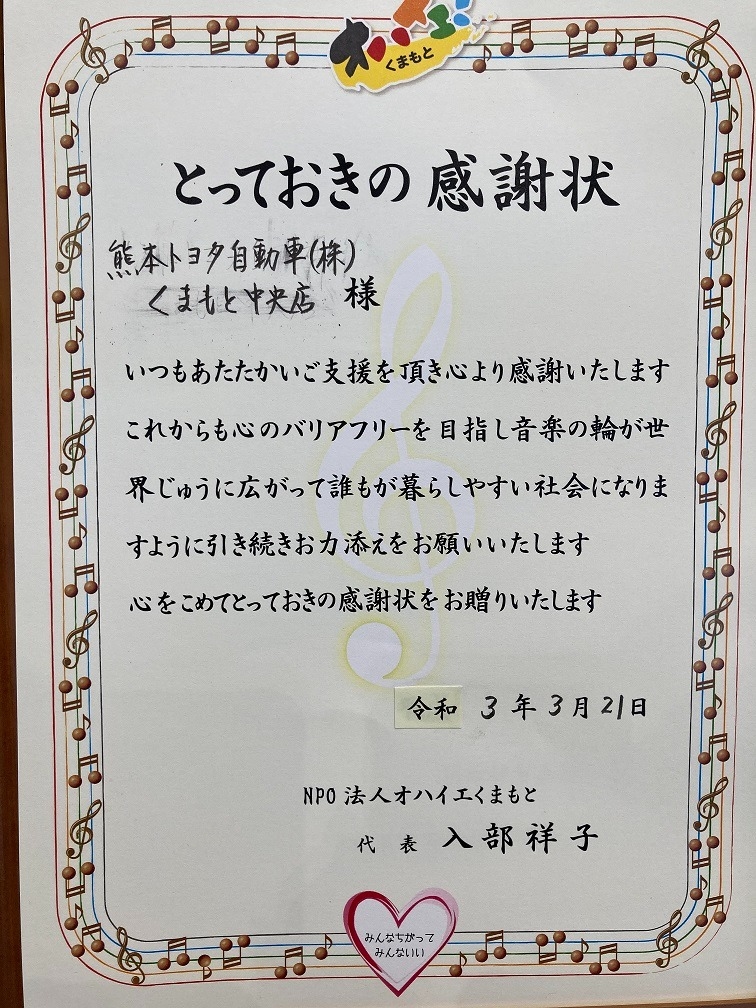 オハイエ!
くまもと
とっておきの感謝状
熊本トヨタ自動車(株)
くまもと中央店 様
いつもあたたかいご支援を頂き心より感謝いたします
これからも心のバリアフリーを目指し音楽の輪が世
界じゅうに広がって誰もが暮らしやすい社会になりま
すように引き続きお力添えをお願いいたします
心をこめてとっておきの感謝状をお贈りいたします
令和 3年3月21日
NPO法人オハイエくまもと
代表 入部祥子
みんなちがって
みんないい